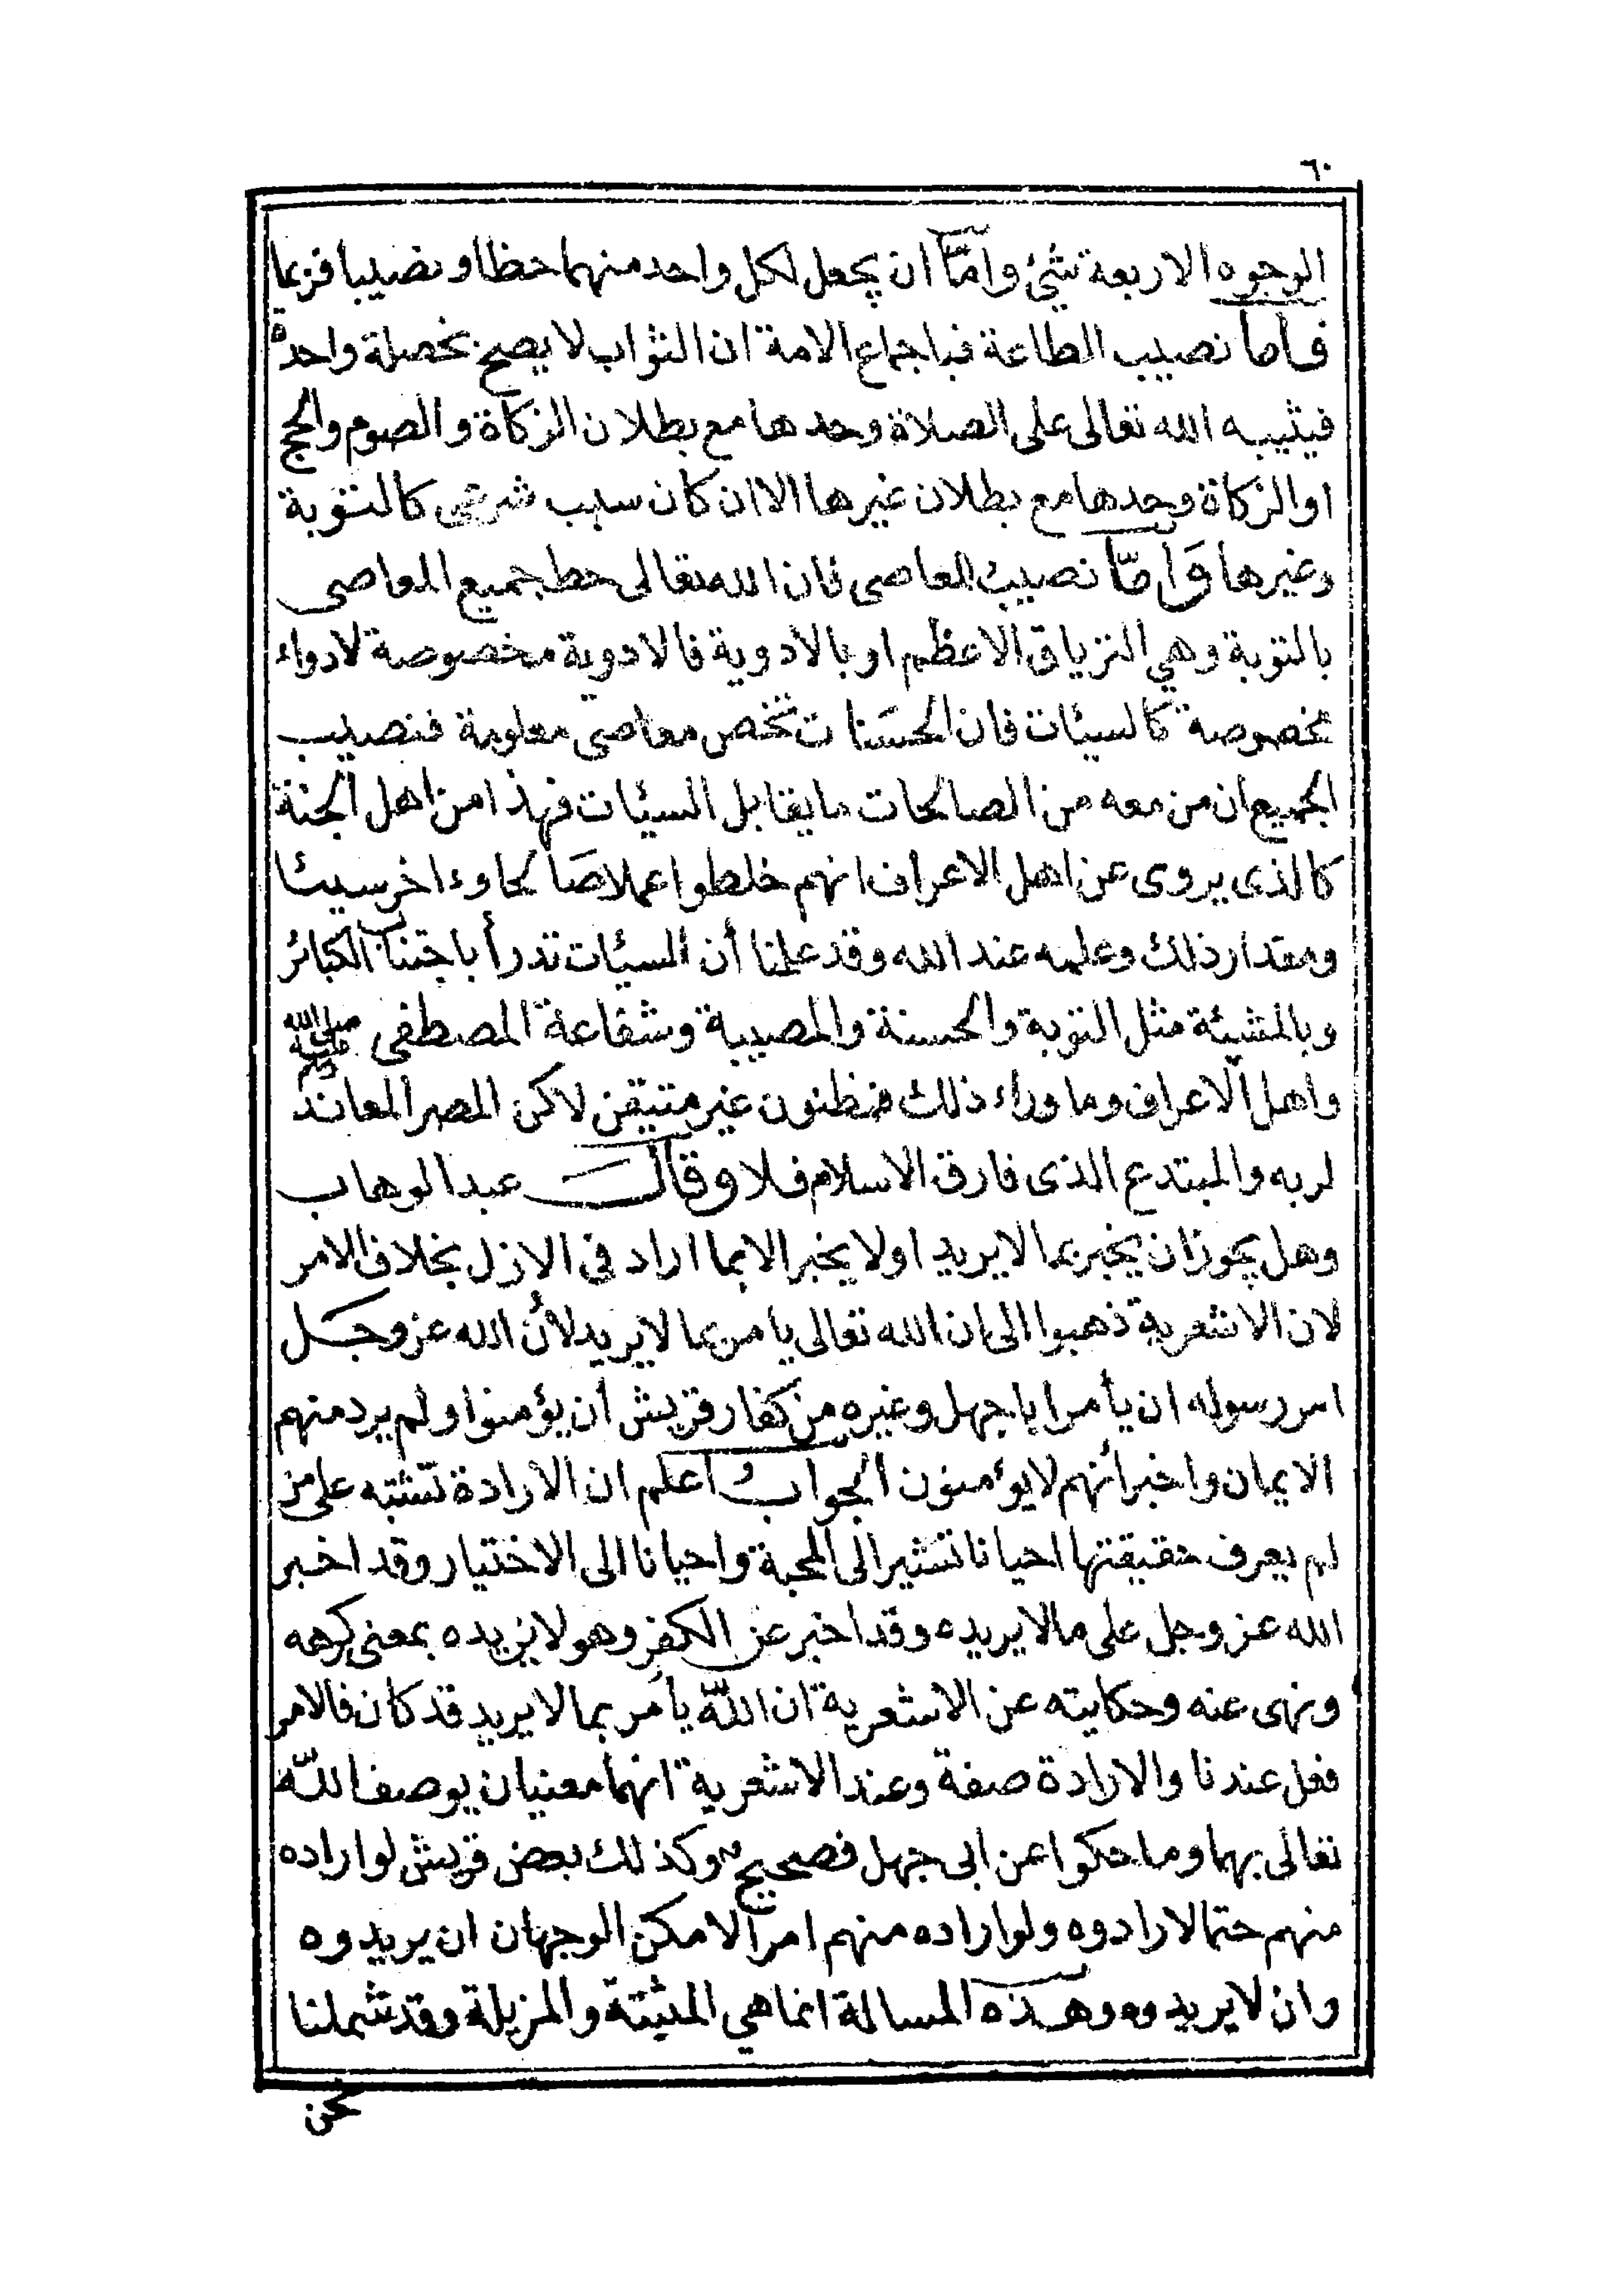 ٦٠
الوجوه الاربعة شيئ وامّا ان يجعل لكل واحد منهما حظا ونصيبا فربما
فأما نصيب الطاعة فباجماع الامة ان الثواب لا يصح بخصلة واحدة
فيثيبه الله تعالى على الصلاة وحدها مع بطلان الزكاة والصوم والحج
او الزكاة وحدها مع بطلان غيرها الا ان كان سبب شرعي كالتوبة
وغيرها وَامّا نصيب المعاصى فان الله تعالى حط جميع المعاصى
بالتوبة وهي الترياق الاعظم او بالادوية فالادوية مخصوصة لادواء
مخصوصة كالسيئات فان الحسَنات تخص معاصى معلومة فنصيب
الجميع ان من معه من الصالحات ما يقابل السيئات فهذا من اهل الجنة
كالذى يروى عن اهل الاعراف انهم خلطوا عملا صَالحا وءاخر سيئا
ومقدار ذلك وعلمه عند الله وقد علمنا أن السيئات تدرأ باجتناب الكبائر
وبالمشيئة مثل التوبة والحسنة والمصيبة وشفاعة المصطفى صلى الله عليه وسلم
واهل الاعراف وما وراء ذلك فظنون غير متيقن لاكن المصر المعاند
لربه والمبتدع الذى فارق الاسلام فلا وقال عبد الوهاب
وهل يجوز ان يخبر بما لا يريد او لا يخبر الا بما اراد فى الازل بخلاف الامر
لان الاشعرية ذهبوا الى ان الله تعالى يامر بما لا يريد لأن الله عز وجَل
امر رسوله ان يأمر ابا جهل وغيره من كفار قريش أن يؤمنوا ولم يرد منهم
الايمان واخبر أنهم لا يؤمنون الجواب اعلم ان الارادة تشتبه على من
لم يعرف حقيقتها احيانا تشير الى المحبة واحيانا الى الاختيار وقد اخبر
الله عز وجل على ما لا يريده وقد اخبر عن الكفر وهو لا يريده بمعنى كرهه
ونهى عنه وحكايته عن الاشعرية ان اللّه يأمر بما لا يريد قد كان فالامر
فعل عندنا والارادة صفة وعند الاشعرية انهما معنيان يوصف اللّه
تعالى بهما وما حكوا عن ابى جهل فصحيح وكذلك بعض قريش لو اراده
منهم حتما لارادوه ولو اراده منهم امرا لامكن الوجهان ان يريدوه
وان لا يريدوه وهذه المسالة انما هي المثبتة والمزيلة وقد شملنا
نحن